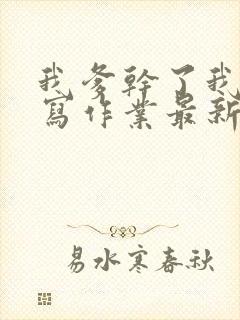 我爹幹了我
寫作業最新
易水寒春秋